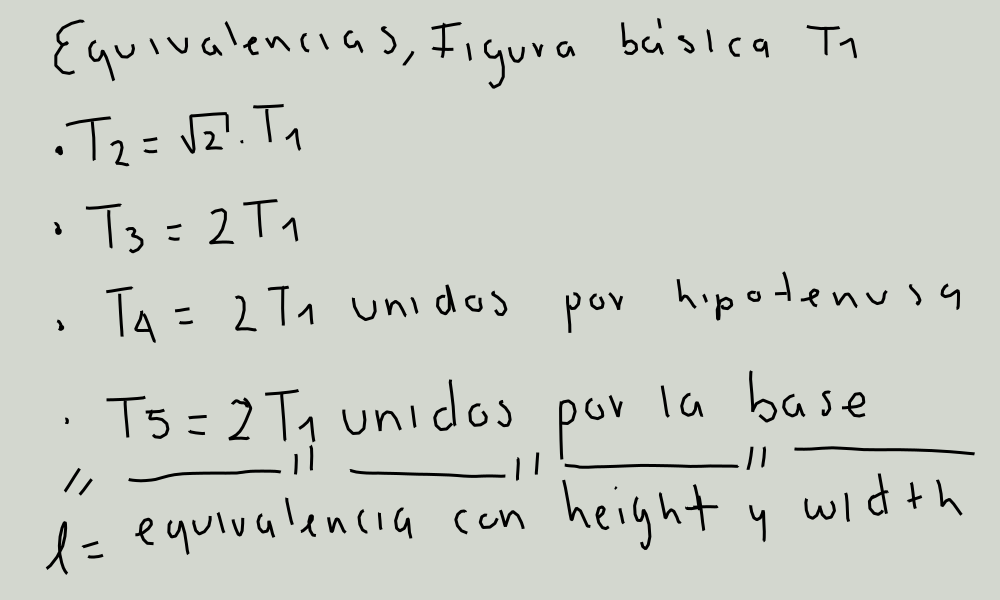 Equivalencias, Figura básica T1
• T2 = √2 · T1
• T3 = 2 T1
• T4 = 2 T1 unidos por hipotenusa
• T5 = 2 T1 unidos por la base
// ——— // ——— // ——— // ———
l = equivalencia con height y width